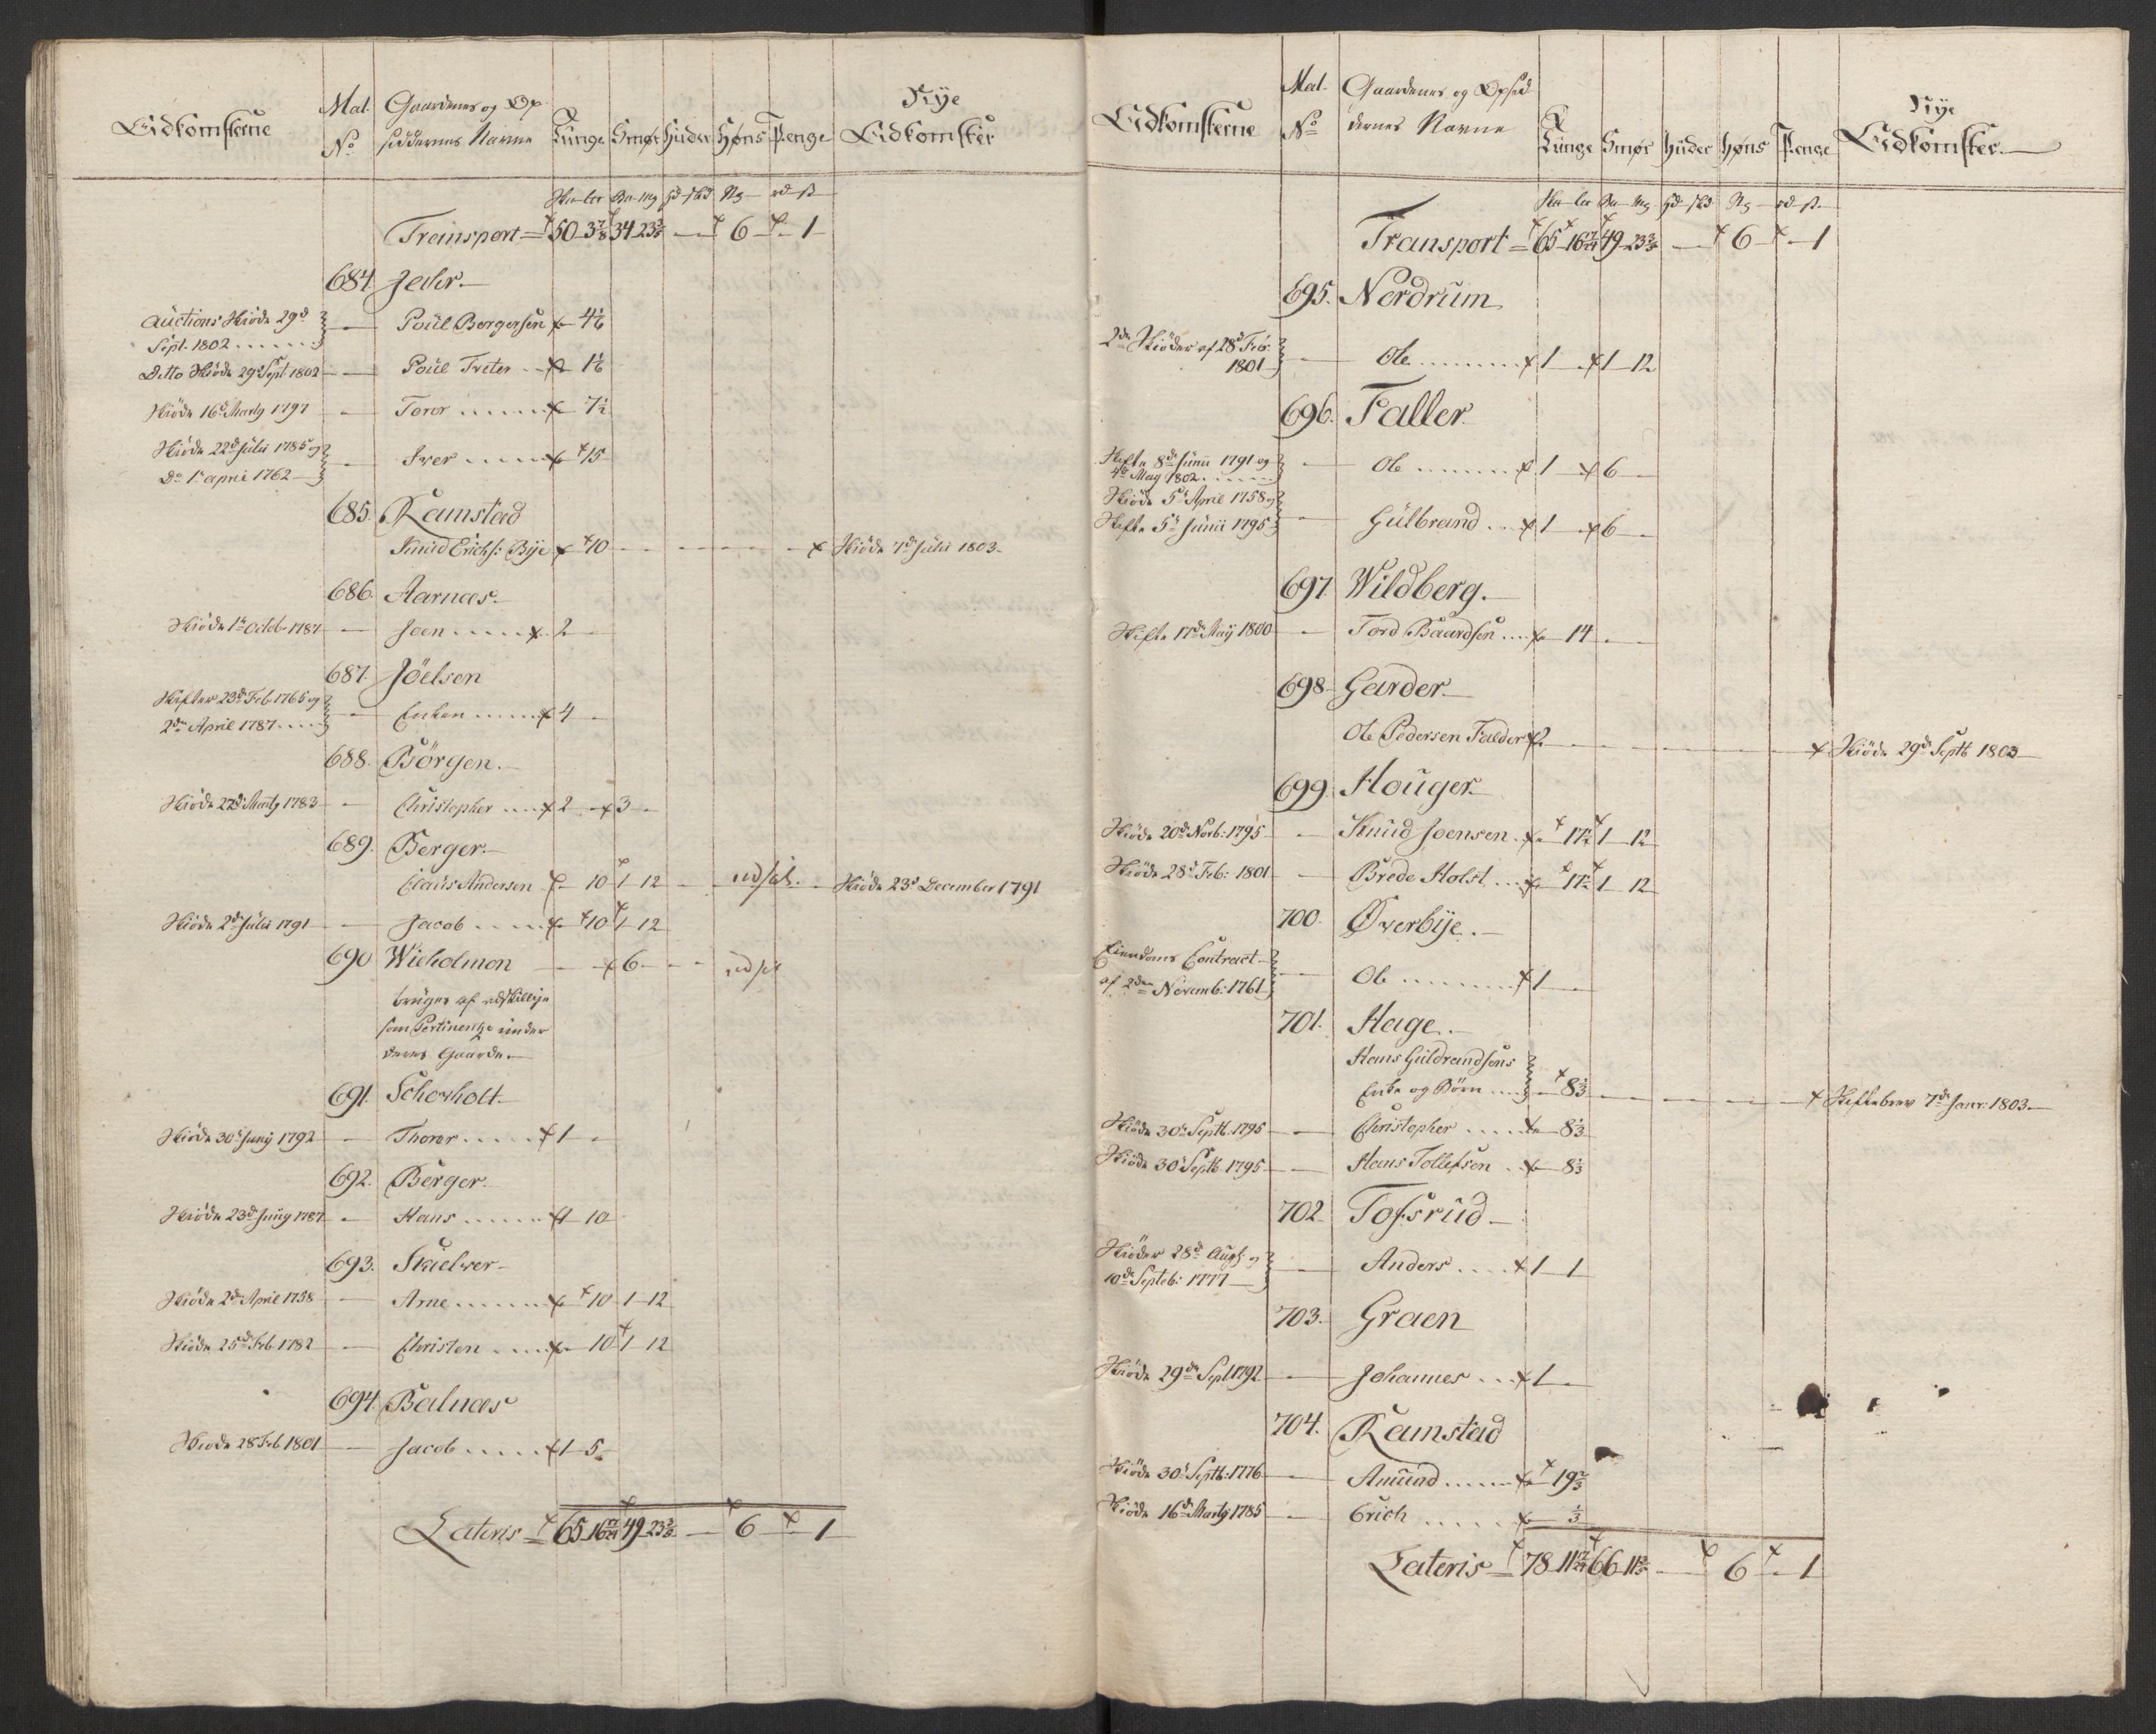 Adkomsterne
Mal. No
Gaardenes og Op-
siddernes Navne
Tunge Smør Huder Høns Penge
Nÿe
Adkomster
Transport = 50 3 7/8 34 23 3/5 — 6 — 1
684 Jehr.
Auctions Skiöde 29d
Sept. 1802 — Poül Bergersen 4 1/6
Ditto Skiöde 29 Sept 1802 — Poül Treter 1 1/6
Skiöde 16d Martÿ 1797 — Torer 7 1/2
Skiöde 22d Julii 1785 og
Do 1 april 1762 — Iver 15
685. Ramstad
Knud Erichs: Bÿe 10 — Skiöde 7d Julii 1803
686. Aarnæs.
Skiöde 1 Octob. 1787 — Joen 2
687. Jöelsen
Skifter 23d Feb. 1765 og
2den April 1787 — Enken 4
688. Börgen.
Skiöde 22d Martÿ 1783 — Christopher 2 — 3
689. Berger.
Claus Andersen 10 1 12 — udsl. — Skiöde 23d December 1791
Skiöde 2d Julii 1791 — Jacob 10 1 12
690 Wieholmen — 6 —
bruges af
som Pertinentze under
deres Gaarde.
691. Schorholt
Skiöde 30 Junÿ 1792 — Thorer 1
692. Berger.
Skiöde 23d Junÿ 1787 — Hans 1 10
693. Skielver
Skiöde 2d April 1758 — Arne 10 1 12
Skiöde 25d Feb. 1782 — Christen 10 1 12
694. Balnæs
Skiöde 28 Feb 1801 — Jacob 1 5
Lateris = 65 16 17/24 49 23 3/5 — 6 — 1
Adkomsterne
Mal. No
Gaardenes og Opsid-
dernes Navne
Tunge Smør Huder Høns Penge
Nÿe
Adkomster.
Transport = 65 16 17/24 49 23 3/5 — 6 — 1
695. Nordrum
2de Skiöder af 28d Feb.
1801 — Ole 1 1 12
696. Faller
Skifte 8de Junii 1791 og
4de Maÿ 1802 — Ole 1 6
Skiöde 5d April 1758 og
Skifte 5 Junii 1795 — Gülbrand 1 6
697 Wildberg.
Skifte 17de Maÿ 1800 — Tord Baardsen 14
698 Garder.
Ole Pedersen Falder 2 — Skiöde 29d Septb 1803
699. Houger
Skiöde 20d Novb: 1795 — Knud Joensen 17 1/2 1 12
Skiöde 28d Feb: 1801 — Brede Holst 17 1/2 1 12
700. Øverbÿe.
Eiendoms Contract
af 2den Novemb: 1761 — Ole 1
701. Hage.
Hans Güldrandsens
Enke og Börn 8 1/3 — Skiftebrev 7de Janr: 1803
Skiöde 30 Septb. 1795 — Christopher 8 1/3
Skiöde 30 Septb. 1795 — Hans Tollefsen 8 1/3
702 Tofsrud
Skiöder 28d Augs: og
10de Septeb: 1777 — Anders 1 1
703. Graen
Skiöde 29de Sept 1792 — Johannes 1
704. Ramstad
Skiöde 30 Septb: 1776 — Amund 19 2/3
Skiöde 16d Martÿ 1785 — Erich 1/3
Lateris = 78 11 17/24 66 11 3/5 — 6 — 1